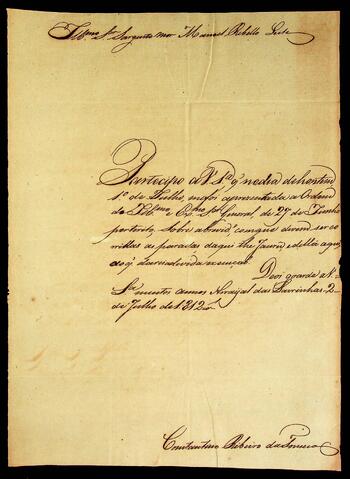 Illmo Sr Sargento mor Manoel Rebello Leite
Partecipo a V. Sa q no dia de hontem
1o de Julho, me foi aprezentada a Ordem
do Illmo e Exmo Sr General de 27 de Junho
portaria, sobre a brevid. com que devem ser co
rridas as paradas daqui the Jauru e della aqui,
do q darei a devida execução.
Deos guarde a V.
Sa muitos annos Arraýal das Larrinhas 2
de Julho de 1812
Constantino Ribeiro da Fonseca